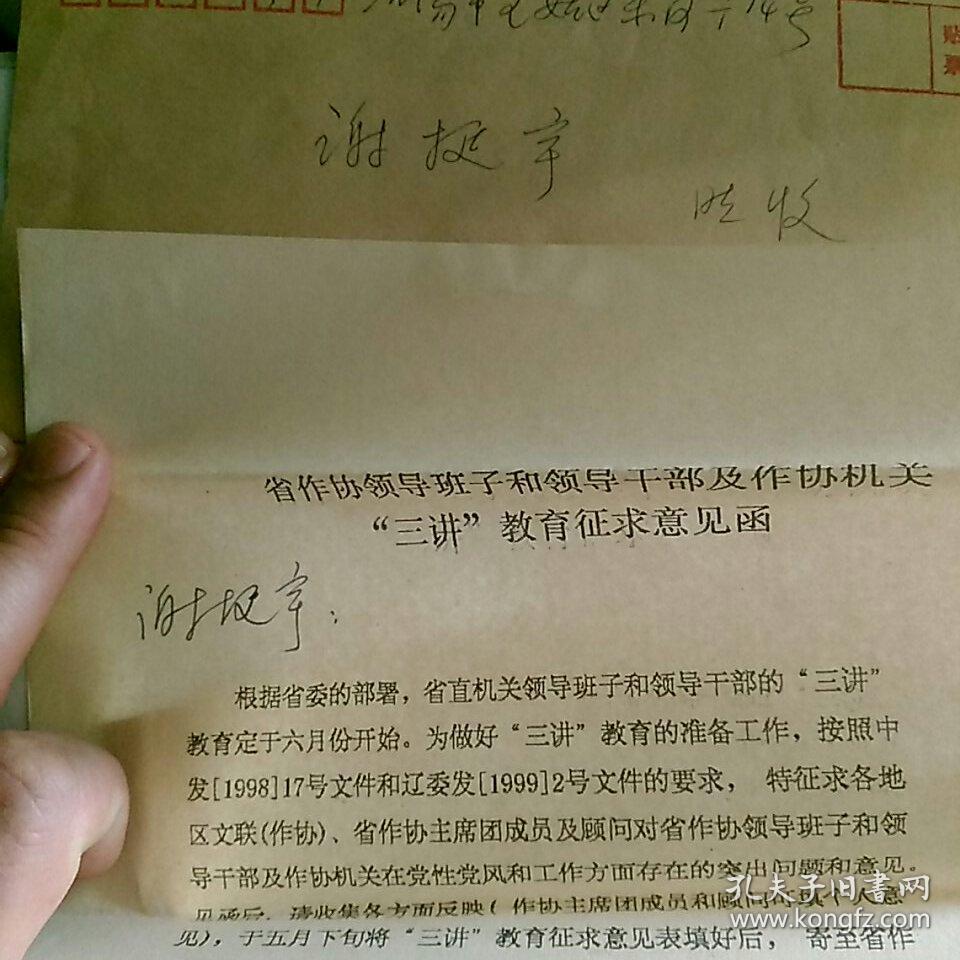 14号
贴
票
谢挺宇
收
省作协领导班子和领导干部及作协机关
“三讲”教育征求意见函
谢挺宇：
根据省委的部署，省直机关领导班子和领导干部的“三讲”
教育定于六月份开始。为做好“三讲”教育的准备工作，按照中
发[1998]17号文件和辽委发[1999]2号文件的要求，特征求各地
区文联(作协)、省作协主席团成员及顾问对省作协领导班子和领
导干部及作协机关在党性党风和工作方面存在的突出问题和意见。
见函后，请收集各方面反映(作协主席团成员和顾问可谈个人意
见)，于五月下旬将“三讲”教育征求意见表填好后，寄至省作
孔夫子旧书网
www.kongfz.com